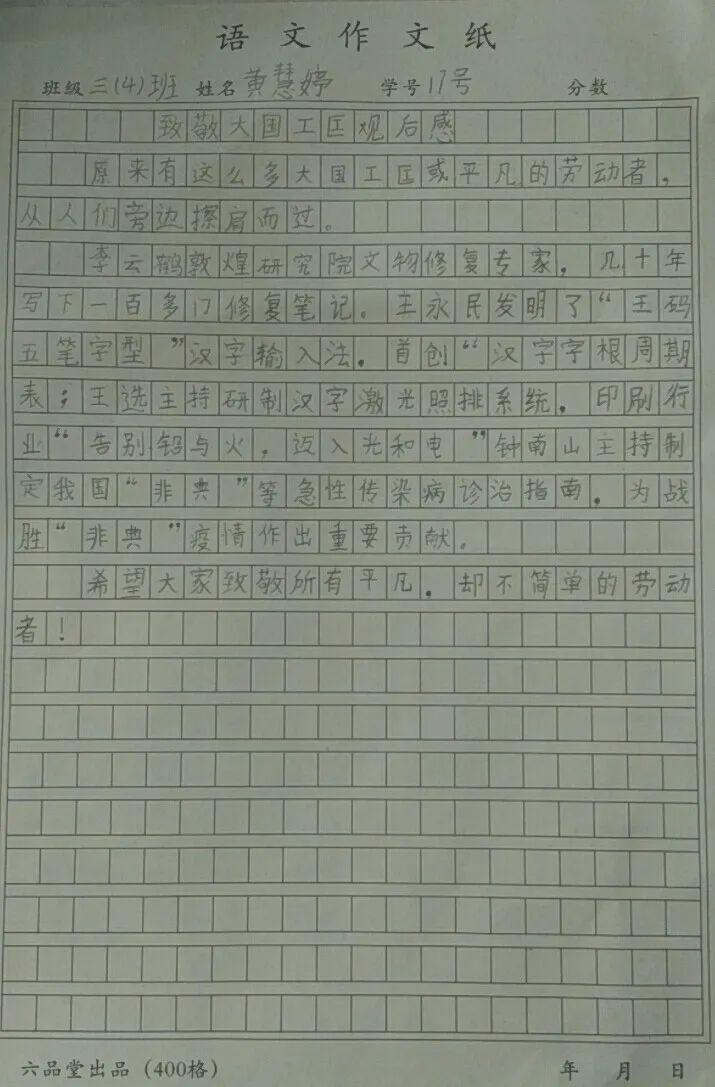 语文作文纸
班级三(4)班 姓名黄慧婷 学号17号 分数
致敬大国工匠观后感
原来有这么多大国工匠或平凡的劳动者，
从人们旁边擦肩而过。
李云鹤敦煌研究院文物修复专家，几十年
写下一百多门修复笔记。王永民发明了“王码
五笔字型”汉字输入法，首创“汉字字根周期
表；王选主持研制汉字激光照排系统，印刷行
业“告别铅与火，迈入光和电”钟南山主持制
定我国“非典”等急性传染病诊治指南，为战
胜“非典”疫情作出重要贡献。
希望大家致敬所有平凡，却不简单的劳动
者！
六品堂出品（400格） 年 月 日